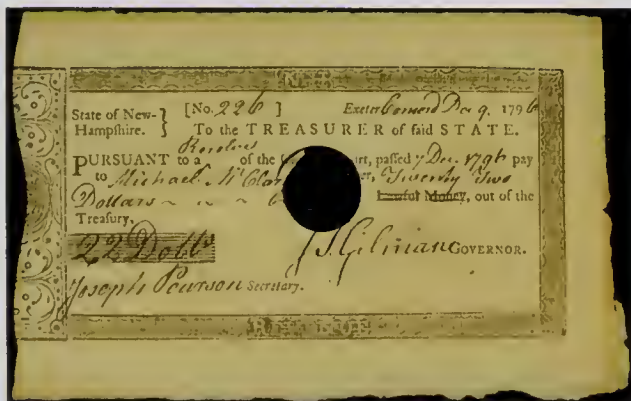 State of New-Hampshire. } [No. 226 ] Exeter Concord Dec 9. 1796
To the TREASURER of said STATE.
PURSUANT to a Resolve of the court, passed 7 Dec. 1796 pay
to Michael McClar Twenty Two
Dollars Lawful Money, out of the
Treasury.
22 Dolls J. T. Gilman GOVERNOR.
Joseph Pearson Secretary.